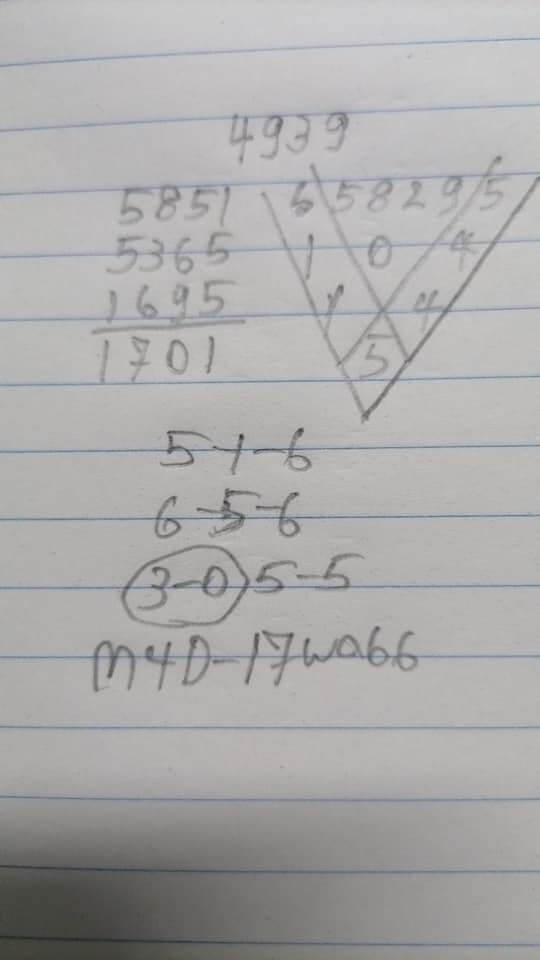 4939
5851
5365
1695
1701
6 5829 5
1 0 4
1 4
5
5-1-6
6-5-6
3-0 5-5
M4D-17wa66